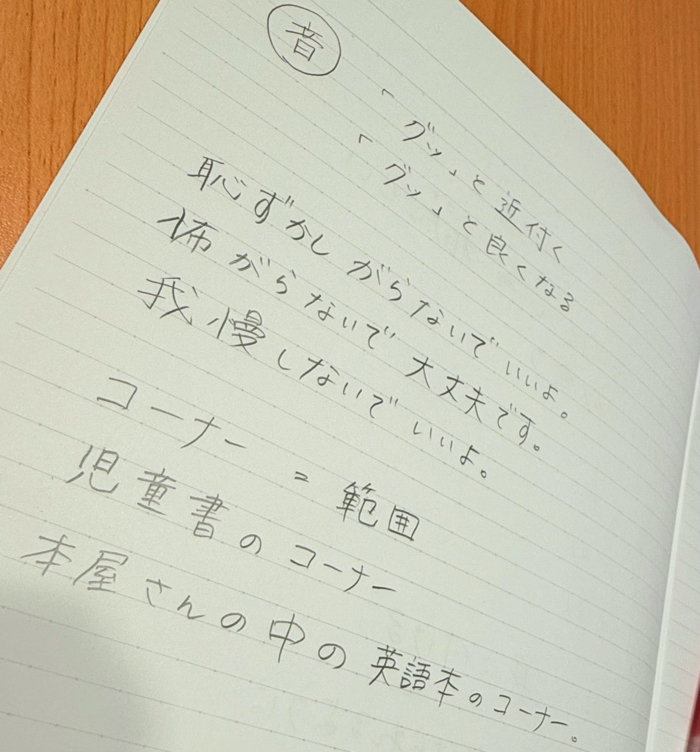 音
「グッ」と近付く
「グッ」と良くなる
恥ずかしがらないでいいよ。
怖がらないで大丈夫です。
我慢しないでいいよ。
コーナー = 範囲
児童書のコーナー
本屋さんの中の英語本のコーナー。